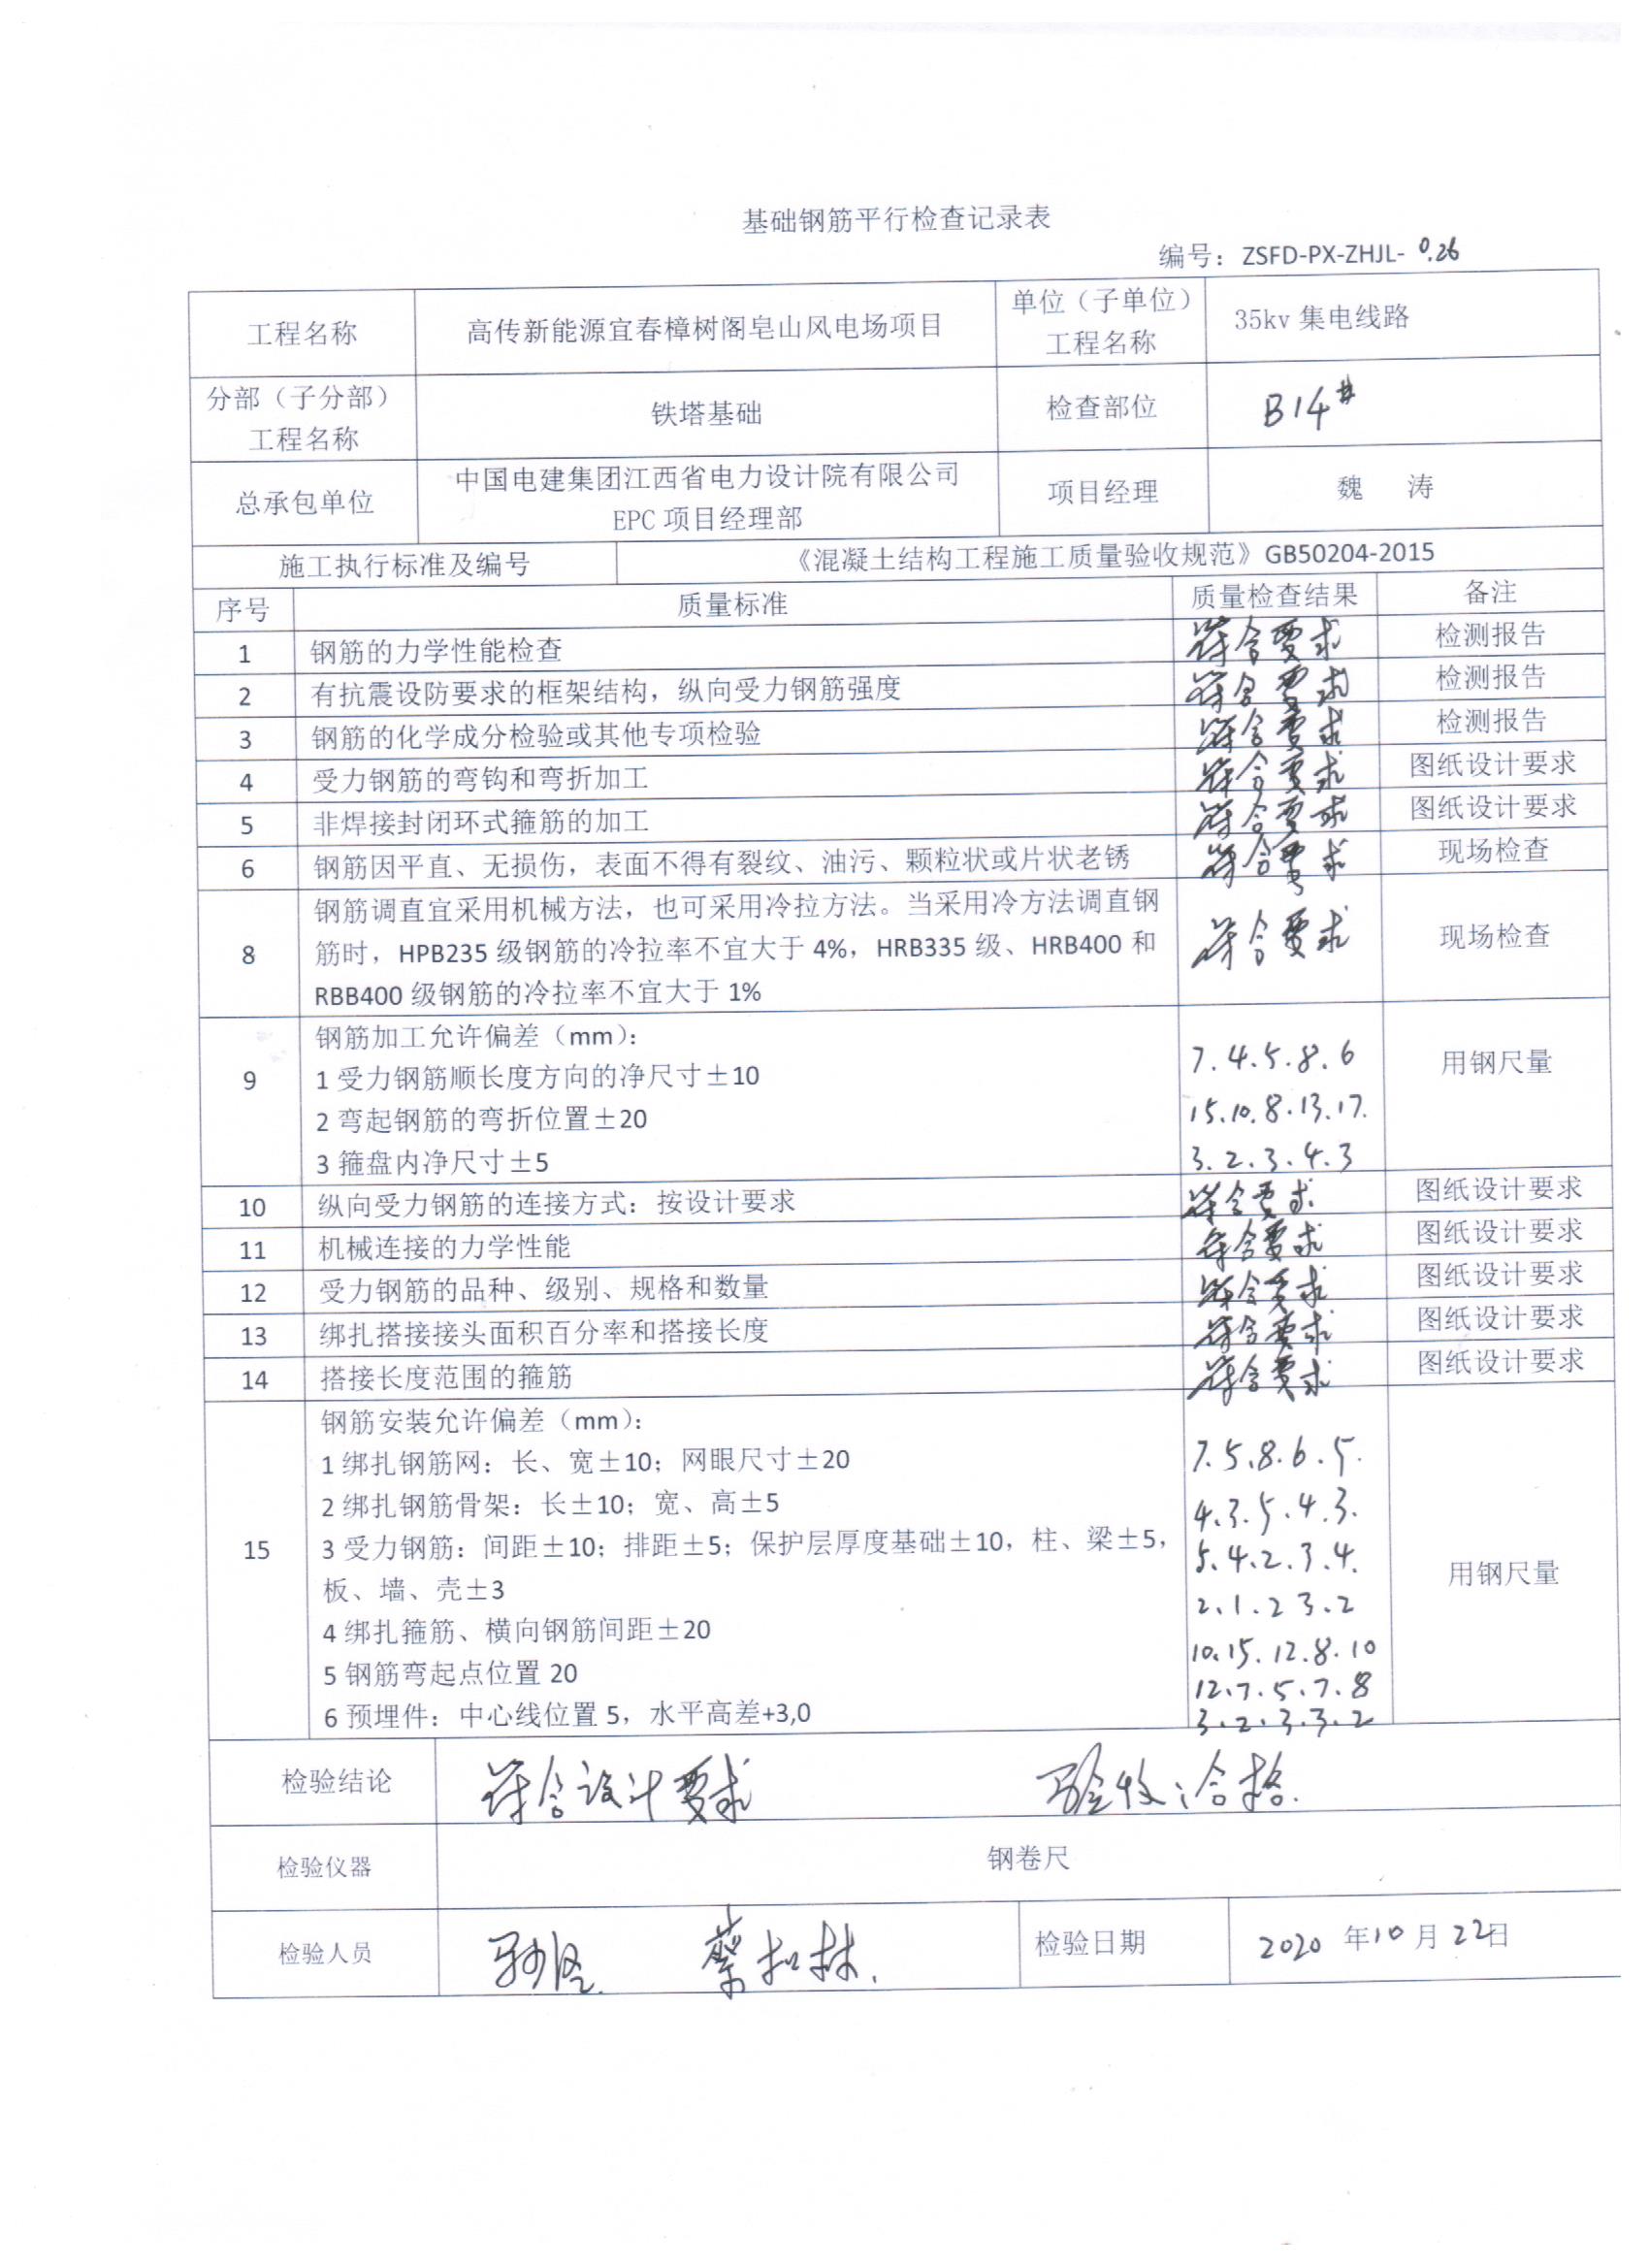 基础钢筋平行检查记录表
编号：ZSFD-PX-ZHJL- 0.26
工程名称 高传新能源宜春樟树阁皂山风电场项目 单位（子单位）工程名称 35kv 集电线路
分部（子分部）工程名称 铁塔基础 检查部位 B14#
总承包单位 中国电建集团江西省电力设计院有限公司 EPC 项目经理部 项目经理 魏 涛
施工执行标准及编号 《混凝土结构工程施工质量验收规范》GB50204-2015
序号 质量标准 质量检查结果 备注
1 钢筋的力学性能检查 符合要求 检测报告
2 有抗震设防要求的框架结构，纵向受力钢筋强度 符合要求 检测报告
3 钢筋的化学成分检验或其他专项检验 符合要求 检测报告
4 受力钢筋的弯钩和弯折加工 符合要求 图纸设计要求
5 非焊接封闭环式箍筋的加工 符合要求 图纸设计要求
6 钢筋因平直、无损伤，表面不得有裂纹、油污、颗粒状或片状老锈 符合要求 现场检查
8 钢筋调直宜采用机械方法，也可采用冷拉方法。当采用冷方法调直钢
筋时，HPB235 级钢筋的冷拉率不宜大于 4%，HRB335 级、HRB400 和 符合要求 现场检查
RBB400 级钢筋的冷拉率不宜大于 1%
9 钢筋加工允许偏差（mm）：
1 受力钢筋顺长度方向的净尺寸±10 7.4.5.8.6 用钢尺量
2 弯起钢筋的弯折位置±20 15.10.8.13.17.
3 箍盘内净尺寸±5 3.2.3.4.3
10 纵向受力钢筋的连接方式：按设计要求 符合要求 图纸设计要求
11 机械连接的力学性能 符合要求 图纸设计要求
12 受力钢筋的品种、级别、规格和数量 符合要求 图纸设计要求
13 绑扎搭接接头面积百分率和搭接长度 符合要求 图纸设计要求
14 搭接长度范围的箍筋 符合要求 图纸设计要求
15 钢筋安装允许偏差（mm）：
1 绑扎钢筋网：长、宽±10；网眼尺寸±20 7.5.8.6.5.
2 绑扎钢筋骨架：长±10；宽、高±5 4.3.5.4.3.
3 受力钢筋：间距±10；排距±5；保护层厚度基础±10，柱、梁±5， 5.4.2.3.4.
板、墙、壳±3 2.1.2 3.2 用钢尺量
4 绑扎箍筋、横向钢筋间距±20 10.15.12.8.10
5 钢筋弯起点位置 20 12.7.5.7.8
6 预埋件：中心线位置 5，水平高差+3,0 3.2.3.3.2
检验结论 符合设计要求 验收：合格.
检验仪器 钢卷尺
检验人员 蔡扣林. 检验日期 2020 年 10 月 22 日